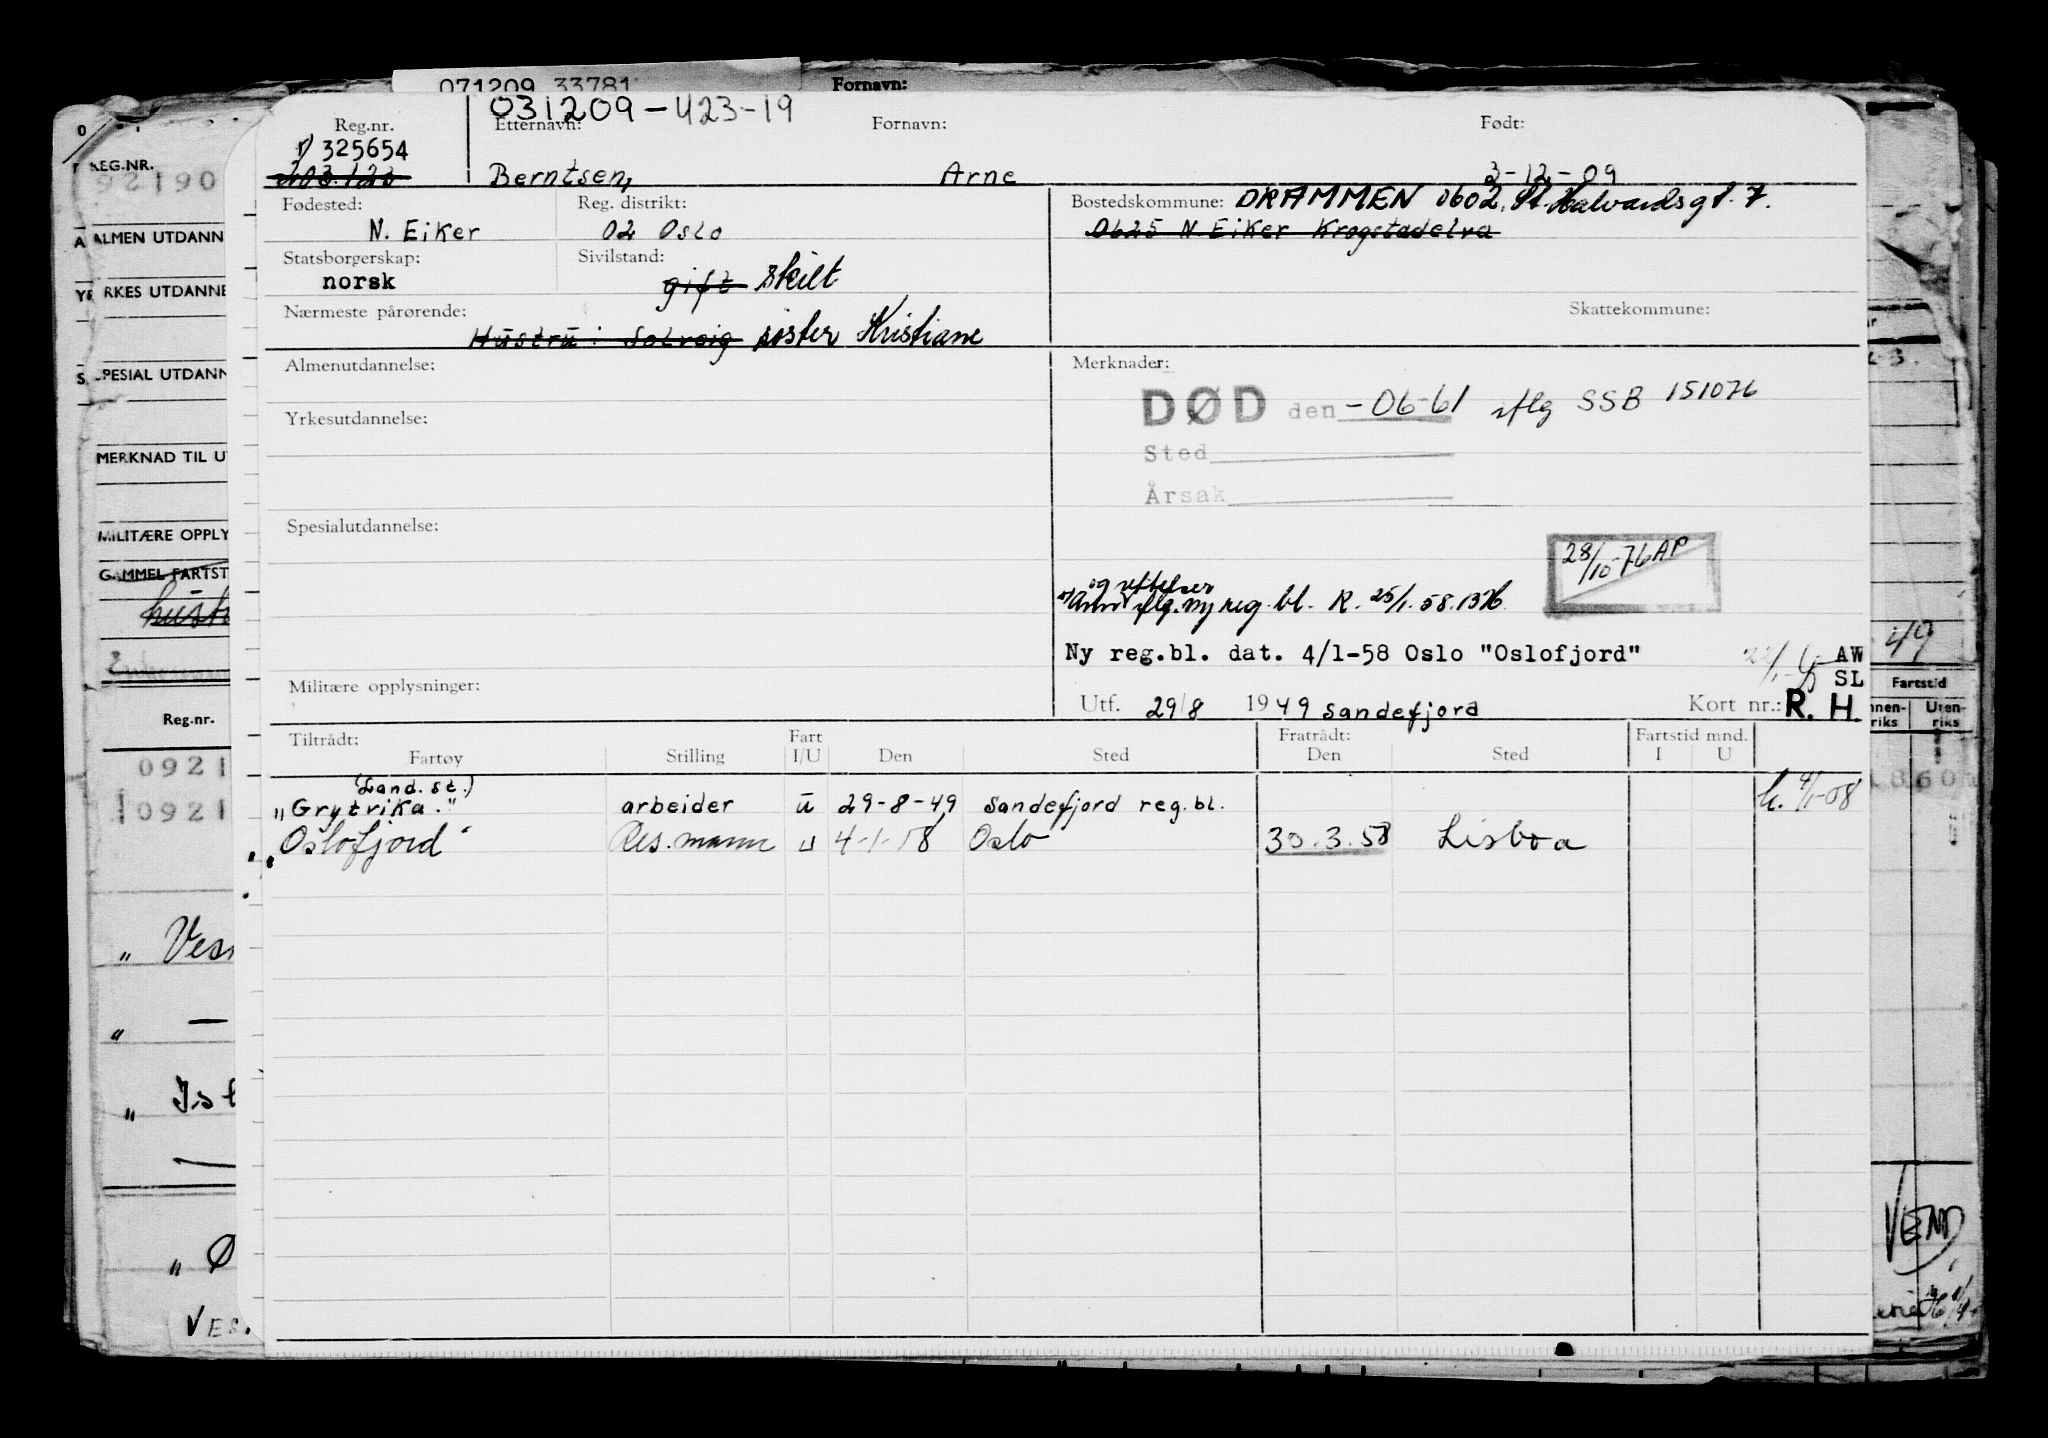 071209 33781
Fornavn:
031209-42319
Reg.nr.
Etternavn:
Fornavn:
Født:
325654
203.123
Berntsen,
Arne
3-12-09
Fødested:
N. Eiker
Reg. distrikt:
02 Oslo
Bostedskommune: DRAMMEN 0602, St. Halvardsgt. 7.
0625 N. Eiker Krogstadelva
Statsborgerskap:
norsk
Sivilstand:
gift skilt
Nærmeste pårørende:
Hustru: Solveig søster Kristiane
Skattekommune:
Almenutdannelse:
Yrkesutdannelse:
Spesialutdannelse:
Militære opplysninger:
Merknader:
DØD den -06-61 iflg SSB 151076
Sted
Årsak
28/10-76 AP
og rettelser
iflg. ny reg. bl. R. 25/1.58.1376
Ny reg.bl. dat. 4/1-58 Oslo "Oslofjord"
AW
SL
Utf. 29/8 1949 Sandefjord
Kort nr.: R. H.
Tiltrådt:
Fartøy
Stilling
Fart
I/U
Den
Sted
Fratrådt:
Den
Sted
Fartstid mnd.
I U
(Land. st.)
"Grytvika." arbeider u 29-8-49 Sandefjord reg.bl.
"Oslofjord" Res.mann u 4-1-58 Oslo 30.3.58 Lisboa
REG.NR.
92190
ALMEN UTDANN
YRKES UTDANNE
SPESIAL UTDANN
MERKNAD TIL U
MILITÆRE OPPLY
GAMMEL FARTST
Reg.nr.
0921
0921
" Ves
" Ist
" Ø
VES.
Fartstid
Uten-
riks
VEND